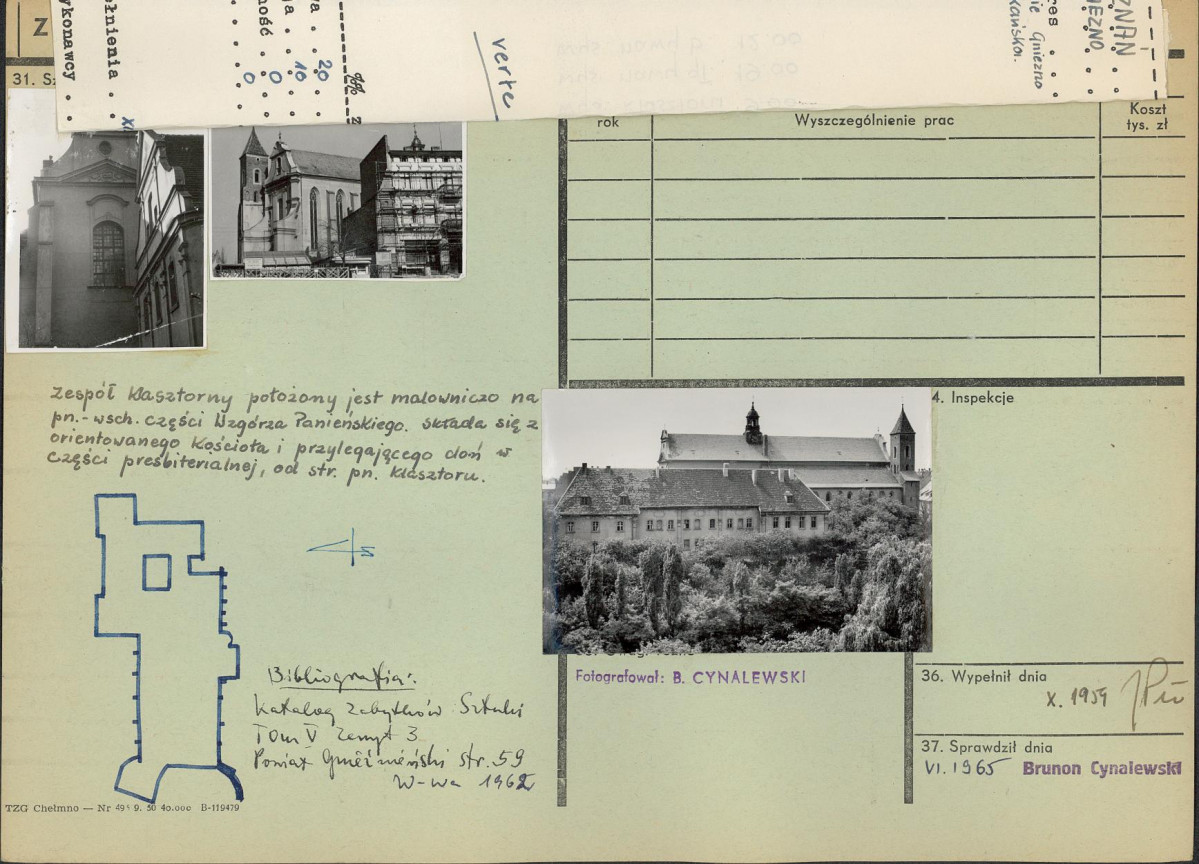 Z
ykonawcy
ełnienia
ność
20
10
0
0
verte
ZNAŃ
IEZNO
res
ie Gniezno
kańska
31. Sz
rok
Wyszczególnienie prac
Koszt
tys. zł
Zespół klasztorny położony jest malowniczo na
pn.-wsch. części Wzgórza Panieńskiego. składa się z
orientowanego kościoła i przylegającego doń w
części presbiterialnej, od str. pn. klasztoru.
4. Inspekcje
Bibliografia:
Katalog Zabytków Sztuki
Tom V Zeszyt 3
Powiat Gnieźnieński str. 59
W-wa 1962
Fotografował: B. CYNALEWSKI
36. Wypełnił dnia
X. 1959
37. Sprawdził dnia
VI. 1965 Brunon Cynalewski
TZG Chełmno — Nr 9. 50 40.000 B-119479